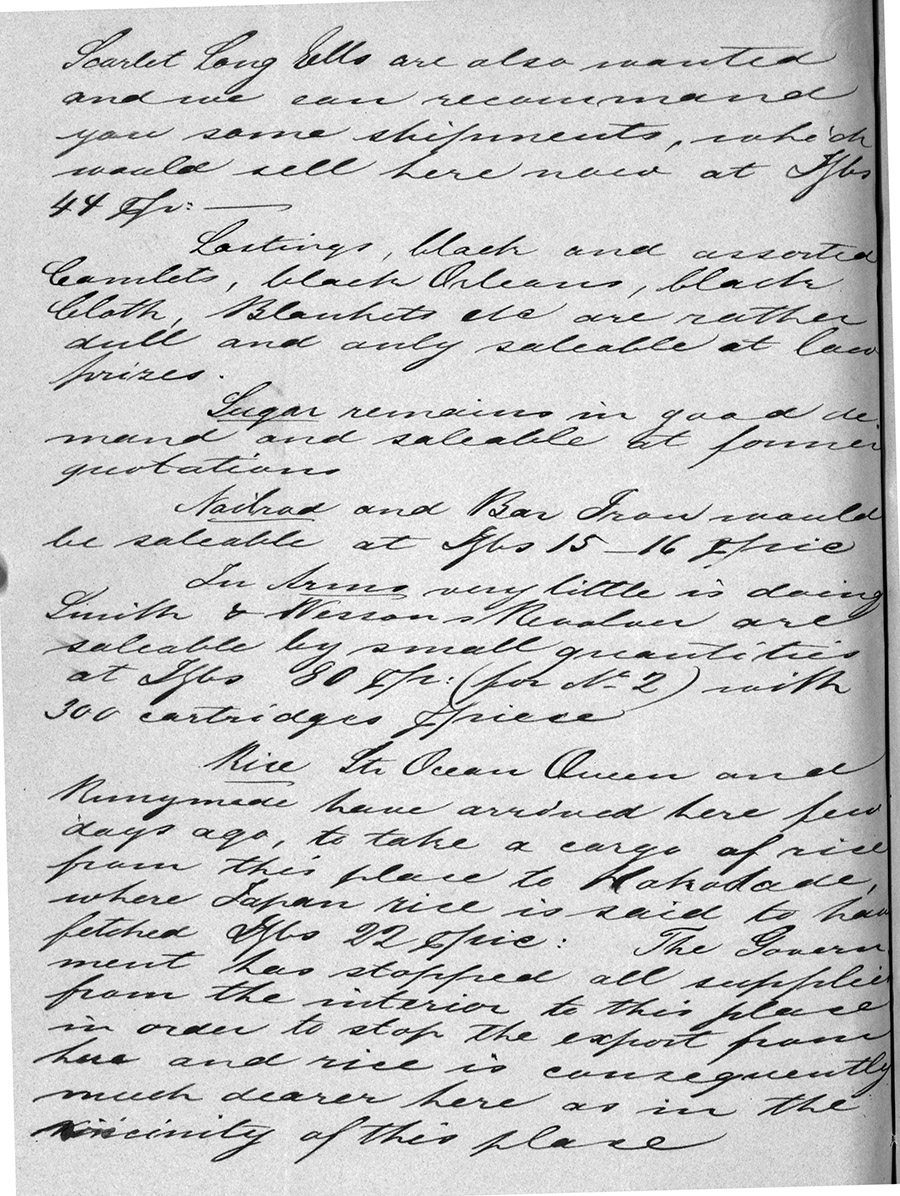 Scarlet Long Ells are also wanted
and we can recommand
you some shipments, which
would sell here now at Itzbs
44 p pr: —
Lastings, black and assorted
Camlets, black Orleans, black
Cloth, Blankets etc are rather
dull and only saleable at low
prizes.
Sugar remains in good de
mand and saleable at former
quotations
Nailrod and Bar Iron would
be saleable at Itzbs 15 – 16 p pic
In Arms very little is doing
Smith & Wessons Revolver are
saleable by small quantities
at Itzbs 80 p pr: (for No 2) with
300 cartridges p piese
Rice Str Ocean Queen and
Runymede have arrived here few
days ago, to take a cargo of rice
from this place to Hakodade,
where Japan rice is said to hav
fetched Itzbs 22 p pic: The Govern
ment has stopped all supplies
from the interior to this place
in order to stop the export from
here and rice is consequently
much dearer here as in the
vincinity of this place